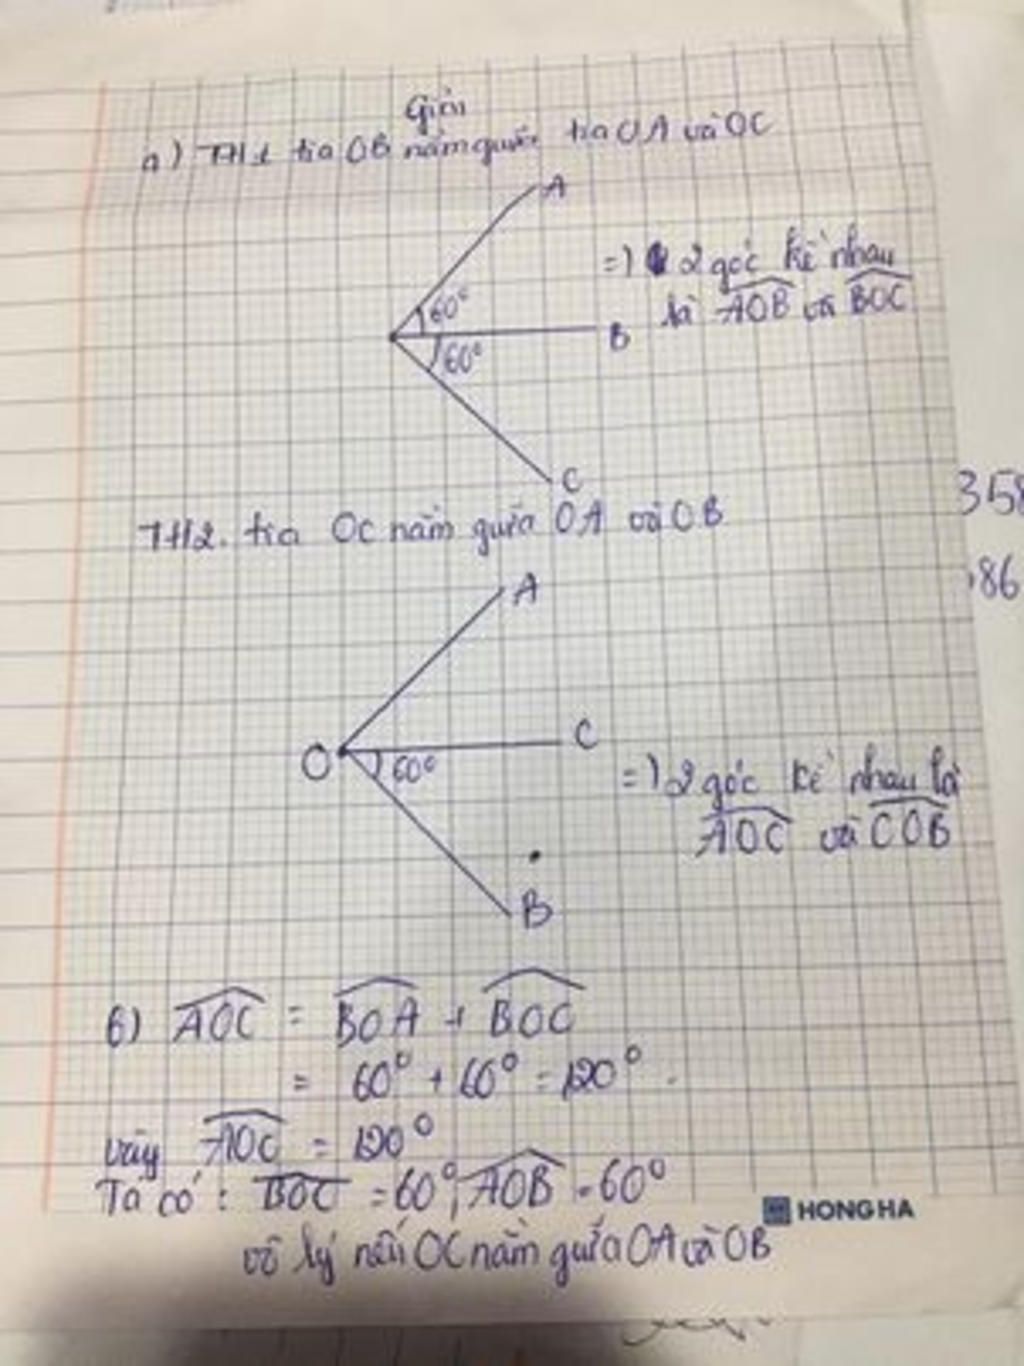 Giải
a) TH1 tia OB nằm giữa tia OA và OC
A
=) 2 góc kề nhau
là AOB và BOC
60°
B
60°
C
TH2. tia OC nằm giữa OA và OB
358
86
A
O
C
60°
=) 2 góc kề nhau là
AOC và COB
B
b) AOC = BOA + BOC
= 60° + 60° = 120°.
vậy AOC = 120°
Ta có: BOC = 60°, AOB = 60°
HONG HA
vô lý nếu OC nằm giữa OA và OB